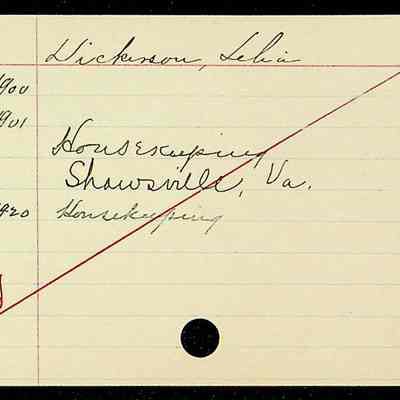 Dickerson, Lelia
1900
1901
Housekeeping
Shawsville, Va.
1920 Housekeeping